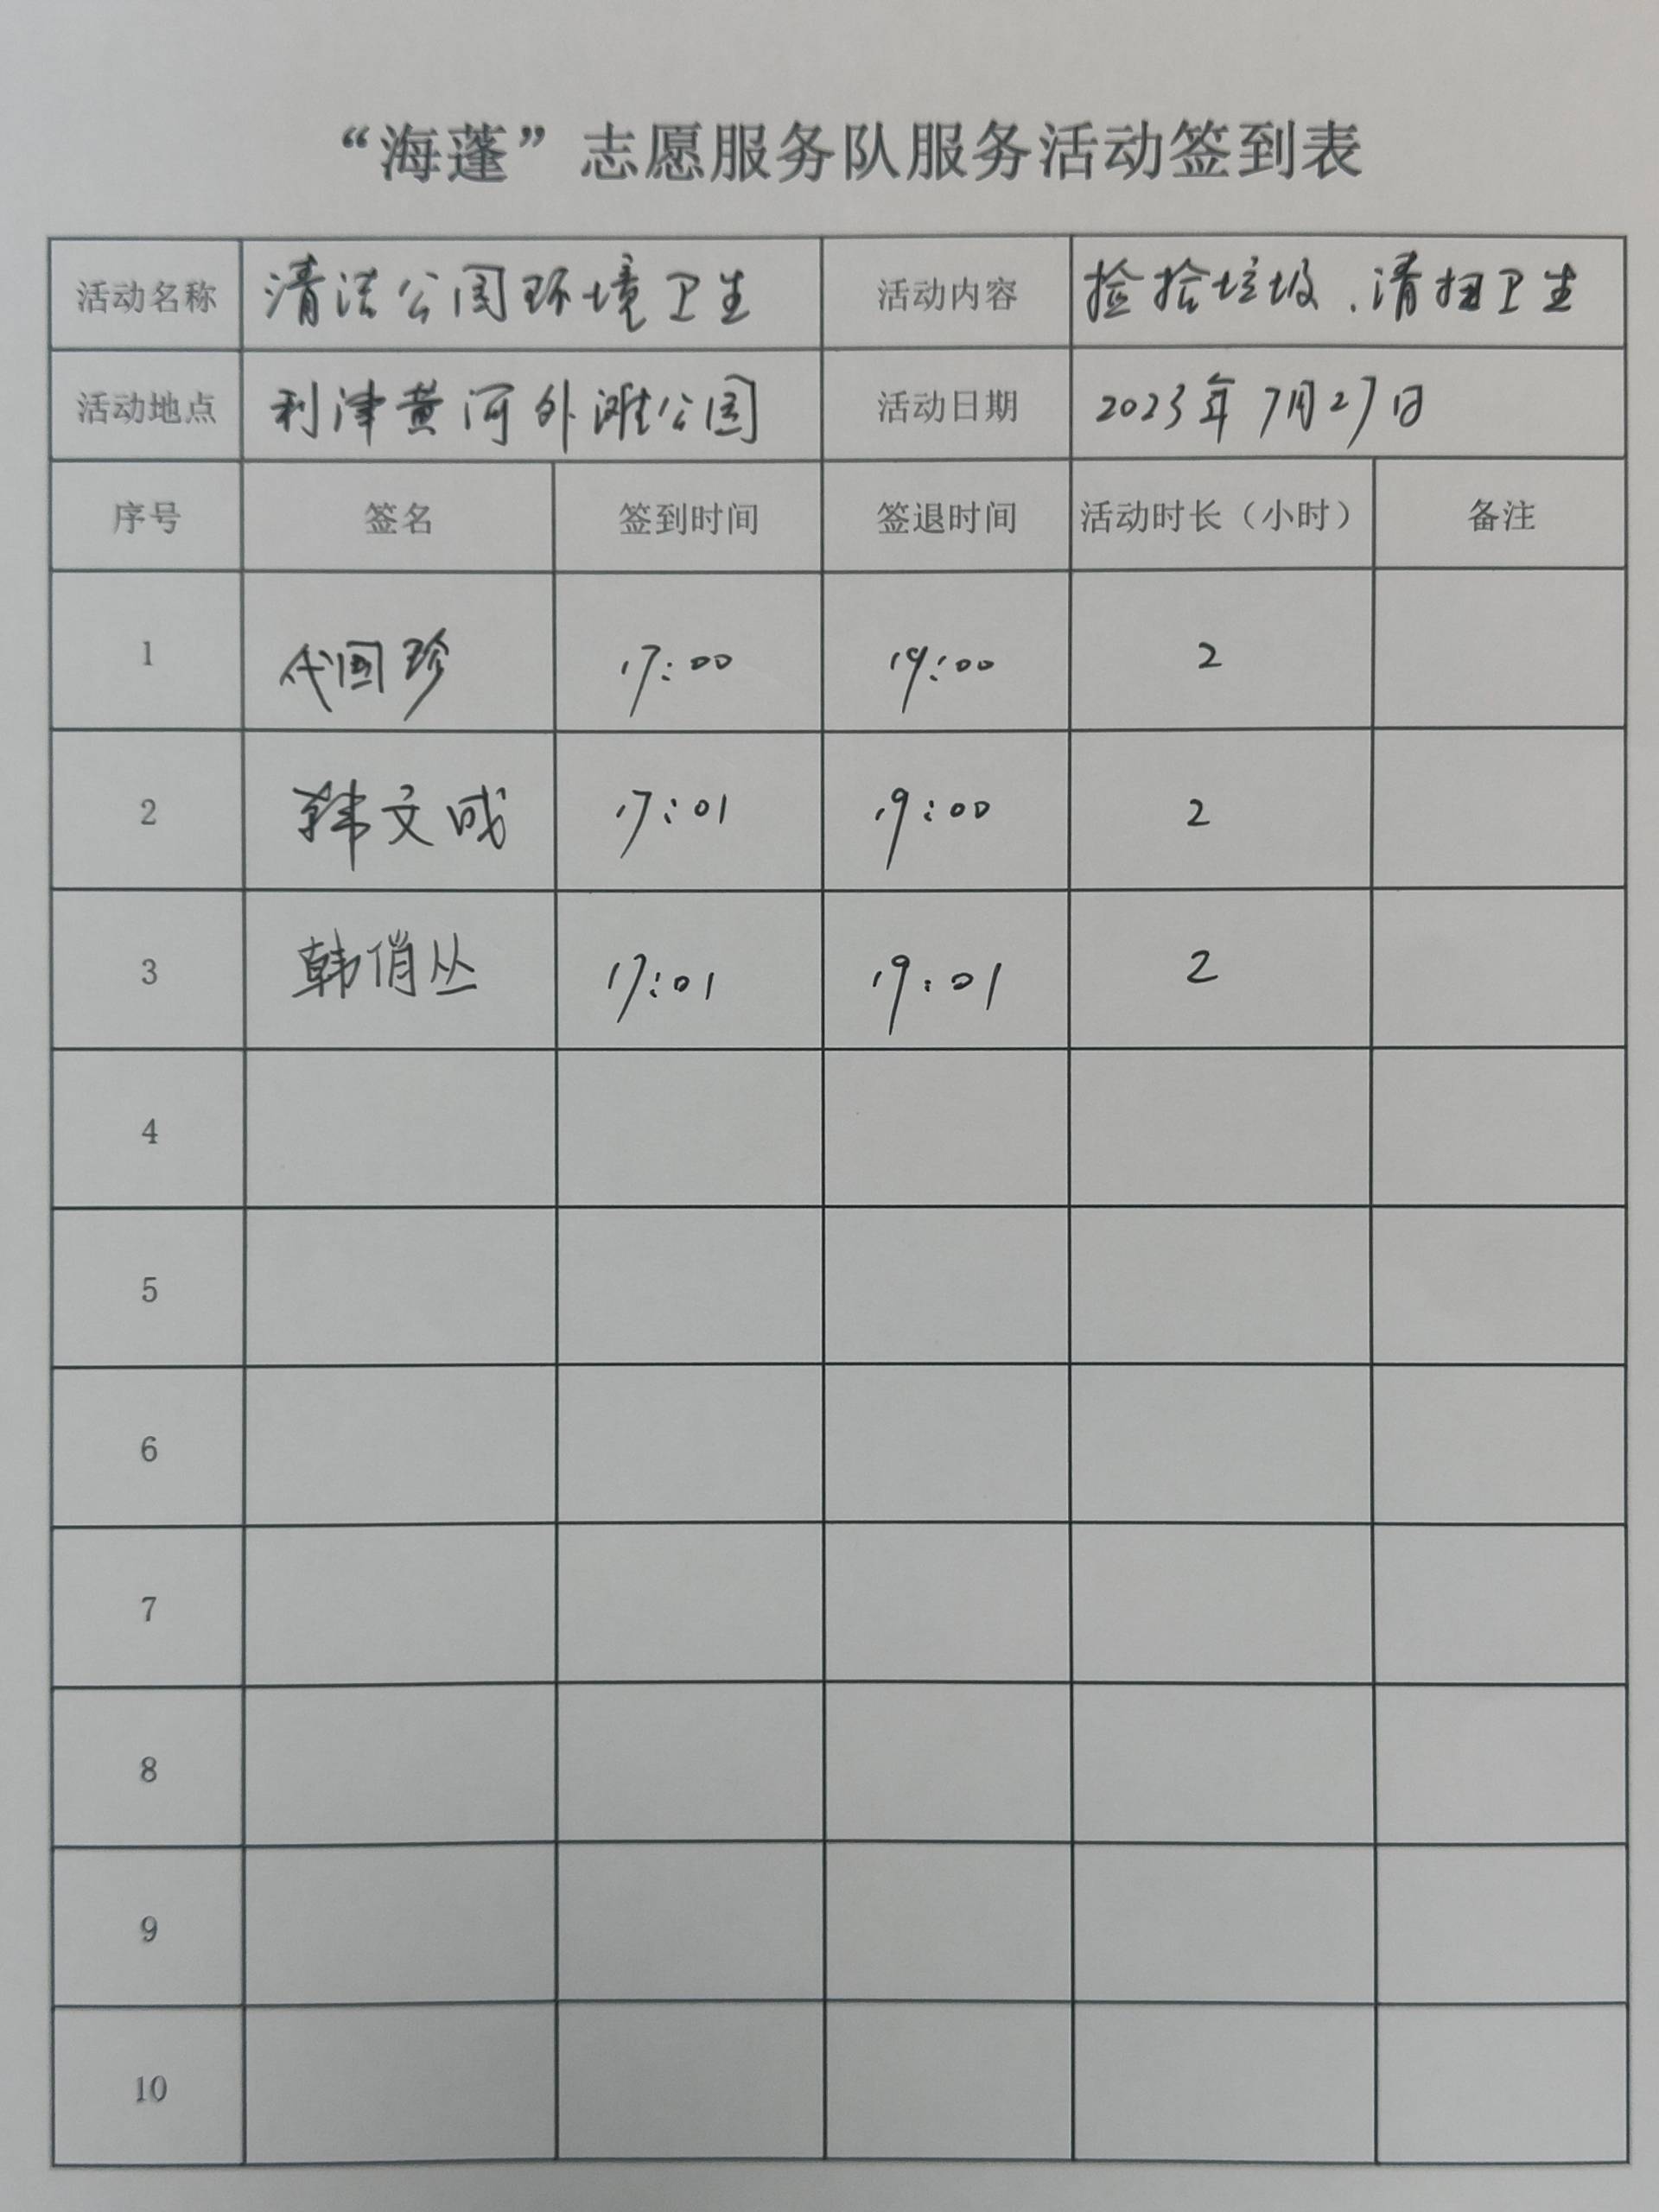 “海蓬”志愿服务队服务活动签到表
活动名称 清洁公园环境卫生 活动内容 捡拾垃圾、清扫卫生
活动地点 利津黄河外滩公园 活动日期 2023年7月27日
序号 签名 签到时间 签退时间 活动时长（小时） 备注
1 代国珍 17:00 19:00 2
2 韩文成 17:01 19:00 2
3 韩俏丛 17:01 19:01 2
4
5
6
7
8
9
10